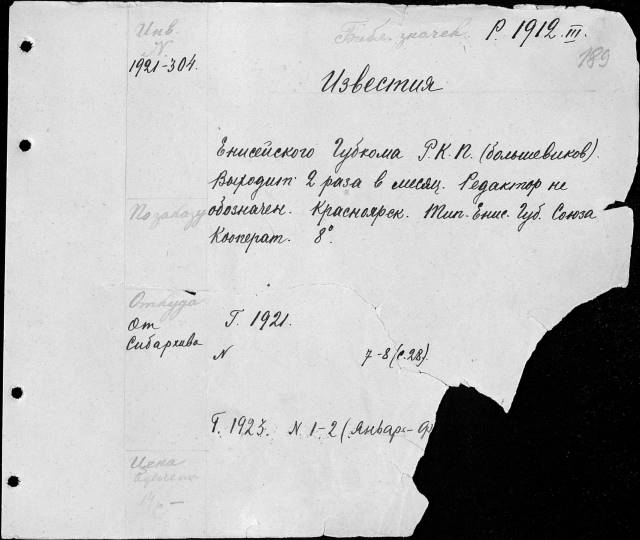 Инв.
N.
1921-304.
Библ. значек. Р. 1912. III.
189
Известия
Енисейского Губкома Р.К.П. (большевиков).
Выходит 2 раза в месяц. Редактор не
По заказу
обозначен. Красноярск. Тип. Енис. Губ. Союза
Кооперат. 8°.
Откуда
От
Сибархива
Г. 1921.
N 7-8 (с. 28).
Г. 1923. N. 1-2 (Январь-Ф
Цена